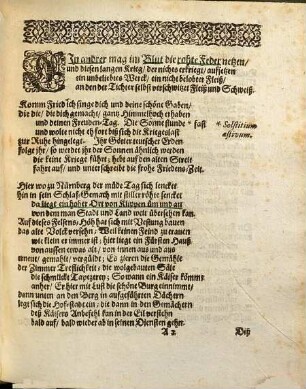 Ein andrer mag im Blut die rohte Feder netzen/
und diesen langen Krieg/ der nichts erkriegt/ aufsetzen
ein unbeliebtes Werck/ ein nicht belobten Fleiß/
an den der Tichter selbst verschwitzt Fleiß und Schweiß.
Komm Fried ich singe dich und deine schöne Gaben/
die die/ die dich gemacht/ gantz Himmelhoch erhaben
und deinen Freuden-Tag. Die Sonne stunde * fast
und wolte nicht eh fort biß sich die Kriegeslast
zur Ruhe hingelegt. Ihr Götter teutscher Erden
folgt ihr/ so werdet ihr der Sonnen ähnlich werden
die keine Kriege führt; hebt auf den alten Streit
fahrt auf/ und unterschreibt die frohe Friedens-Zeit.
* Solstitium
æstivum.
Hier wo zu Nürnberg der müde Tag sich sencket
hin in sein Schlaff-Gemach mit stiller röht sencket
da liegt ein hoher Ort von Klippen üm und an
von dem man Stadt und Land weit übersehen kan.
Auf diese Felsens-Höh hat sich mit Vestung bauen
das alte Volck versehn/ Weil keinem Feind zu trauen
wie klein er immer ist; hier liegt ein Fürsten Hauß
von aussen etwas alt/ von innen aus und aus
erneut/ gemahlt/ vergüldt; Es zieren die Gemählde
der Zimmer Trefflichkeit; die wolgebauten Säle
die schmückt Tapezerey; So wann ein Käiser kommt
anher/ Er hier mit Lust die schöne Burg einnimmt/
dann unten an den Berg in aufgeführten Dächern
legt sich die Hofestadt ein/ die dann in den Gemächern
deß Käisers Anbefehl kan in der Eil verstehn
bald auf/ bald wieder ab in seinen Diensten gehn.
A 2 Deß